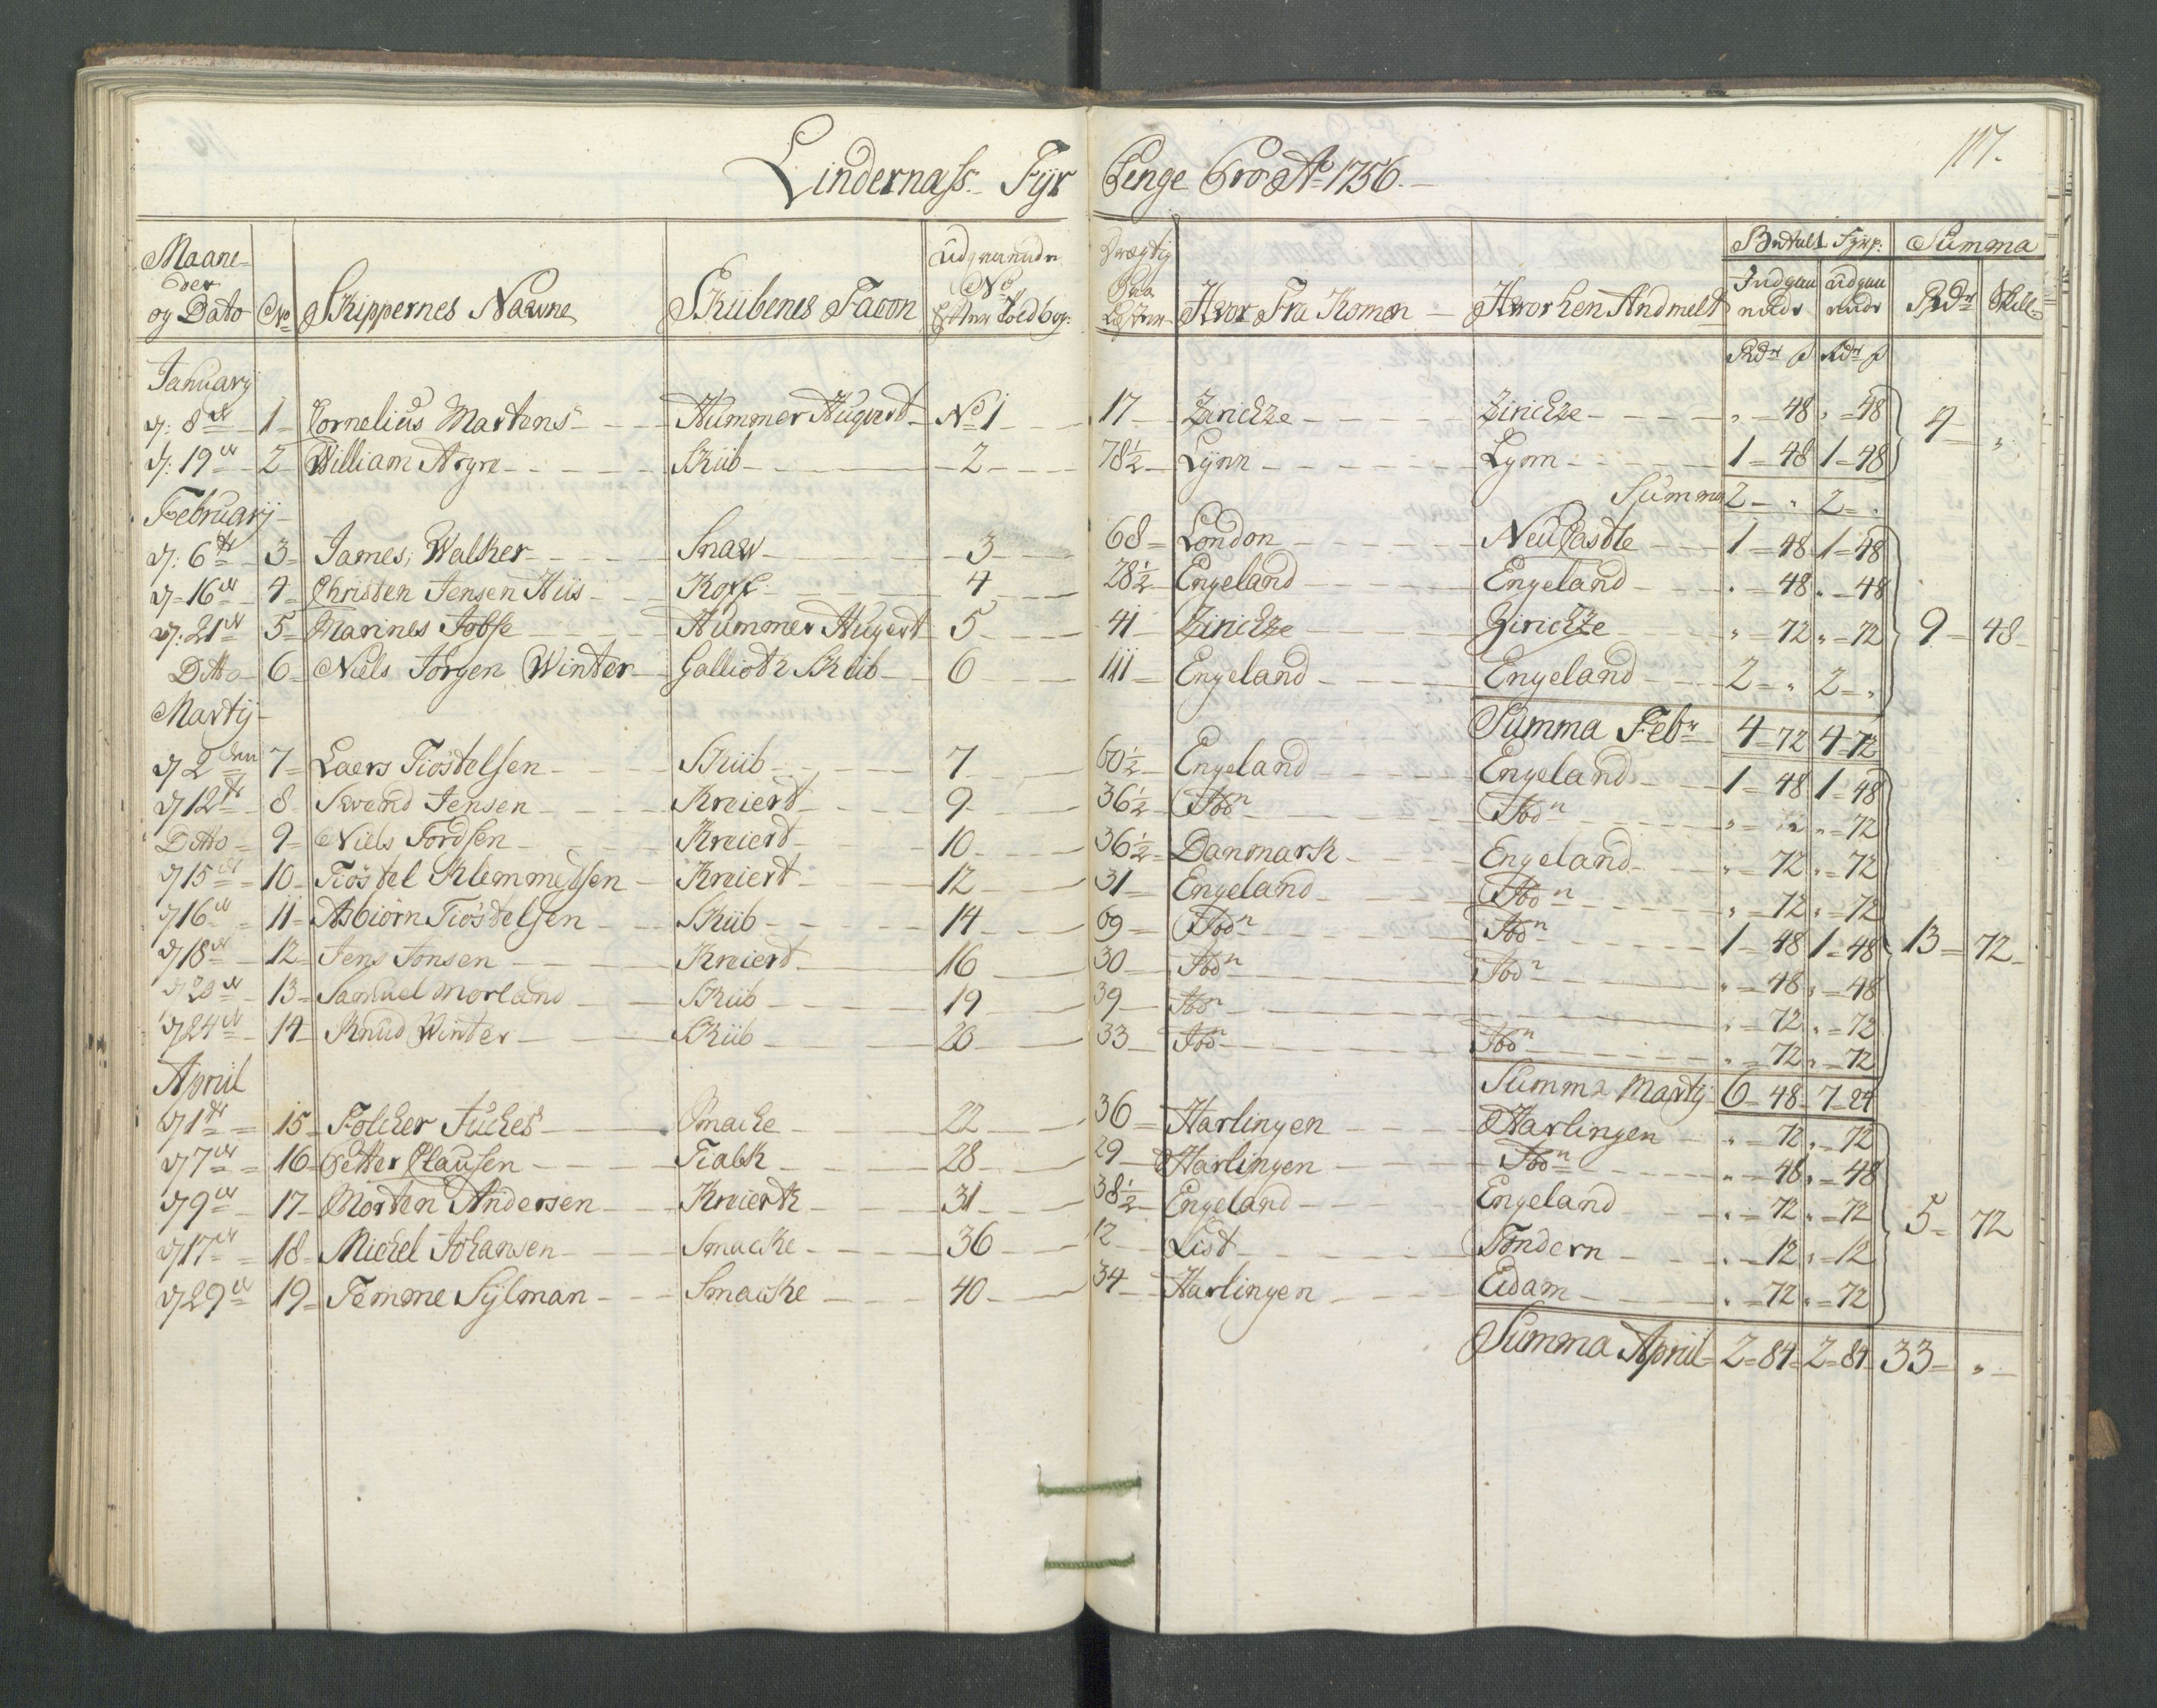 117.
Lindernass Fyr Penge Pro Ao 1756.
Maane-
der
og Dato No Skippernes Nawne Skibenes Facon Udgaaende No Efter Toldbog: Drægtig Paa Lester Hvor Fra Komen Hvorhen Andmelt Betalt Fyrp: Indgaaende Udgaaende Summa Rdr Skill
Rdr ß Rdr ß
January
d: 8de 1 Cornelius Martens Hummer Hugert No 1 17 Zirickze Zirickze " 48 " 48
d: 19de 2 William Skiib 2 78½ Lynn Lynn 1 48 1 48 4 "
Summa 2 " 2 "
February
d: 6te 3 James Walker Snaw 3 68 London NeuCastle 1 48 1 48
d 16de 4 Christen Jensen Hiis Koff 4 28½ Engeland Engeland " 48 " 48
d: 21de 5 Marines Jobse Hummer Hugert 5 41 Zirickze Zirickze " 72 " 72 9 48
Ditto 6 Niels Jörgen Winter Gallioth Skiib 6 111 Engeland Engeland 2 " 2 "
Summa Febr 4 72 4 72
Martij
d 2den 7 Laers Tiöstelsen Skiib 7 60½ Engeland Engeland 1 48 1 48
d 12te 8 Swend Jensen Kreiert 9 36½ Ibdn Ibdn " " " 72
Ditto 9 Niels Tordsen Kreiert 10 36½ Danmark Engeland " 72 " 72
d 15de 10 Tiöstel Klemmetsen Kreiert 12 31 Engeland Ibdn " 72 " 72
d 16de 11 Asbiörn Tiöstelsen Skiib 14 69 Ibdn Ibdn 1 48 1 48 13 72
d 18de 12 Jens Jonsen Kreiert 16 30 Ibdn Ibdn " 48 " 48
d 20de 13 Samuel Morland Skiib 19 39 Ibdn " 72 " 72
d 24de 14 Knud Winter Skiib 20 33 Ibdn Ibdn " 72 " 72
Summa Martij 6 48 7 24
April
d 1te 15 Folcher Smacke 22 36 Harlingen Harlingen " 72 " 72
d 7de 16 Petter Clausen Tialk 28 29 Harlingen Ibdn " 48 " 48
d 9de 17 Morten Andersen Kreiert 31 38½ Engeland Engeland " 72 " 72
d 17de 18 Michel Johansen Smacke 36 12 List Tondern " 12 " 12 5 72
d 29de 19 Femme Sylman Smacke 40 34 Harlingen Eidam " 72 " 72
Summa April 2 84 2 84 33 "